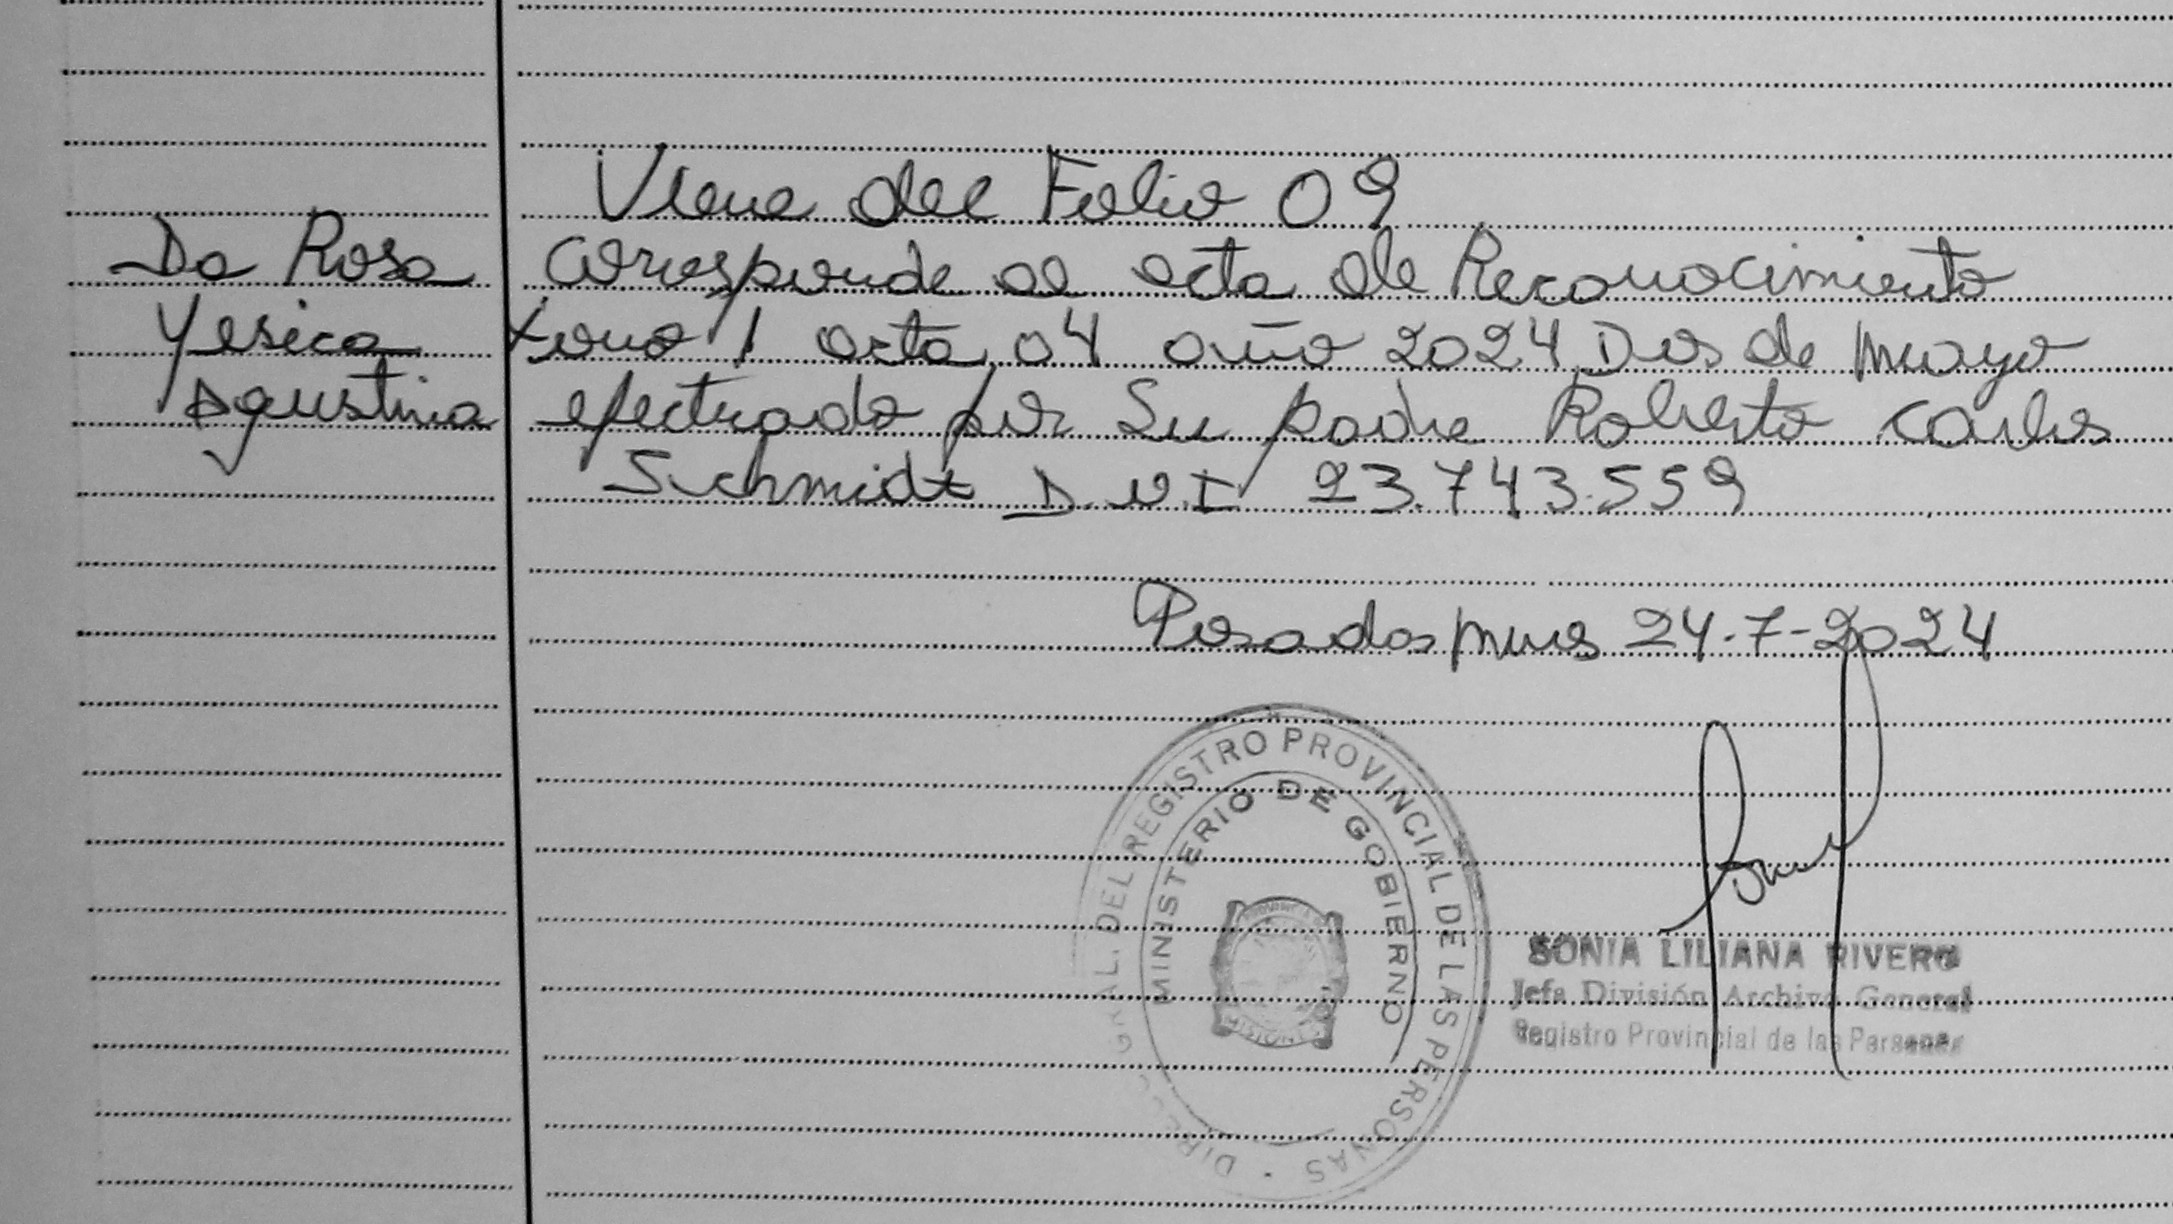 Viene del Folio 09
Da Rosa
Yesica
Agustina
Corresponde al acta de Reconocimiento
tomo 1 acta 04 año 2024 Dos de Mayo
efectuado por Su padre Roberto Carlos
Schmidt D.N.I 23.743.559
Posadas Mnes 24-7-2024
DIRECC GRAL. DEL REGISTRO PROVINCIAL DE LAS PERSONAS
MINISTERIO DE GOBIERNO
SONIA LILIANA RIVERO
Jefa División Archivo General
Registro Provincial de las Personas